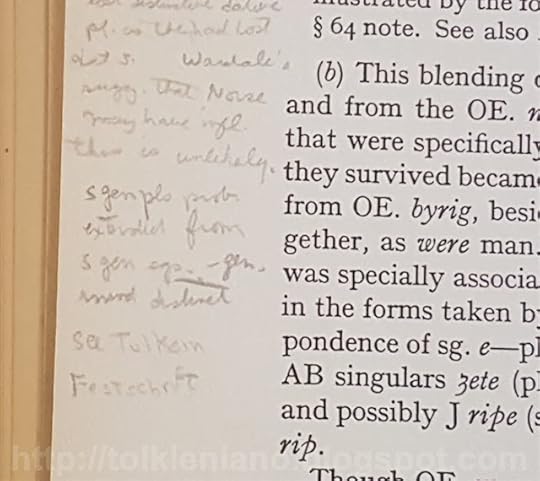 pl. as the had lost
dist s. Wardale's
sugg. that Norse
may have infl.
this is unlikely.
s gen pls prob
extended from
s gen sgs. -gen.
distinct
See Tolkien
Festschrift
illustrated by the fo
§ 64 note. See also
(b) This blending
and from the OE.
that were specifically
they survived becam
from OE. byrig, besi
gether, as were man.
was specially associa
in the forms taken by
pondence of sg. e—pl
AB singulars ȝete (pl
and possibly J ripe (s
rip.
Though OE.
http://tolkieniano.blogspot.com